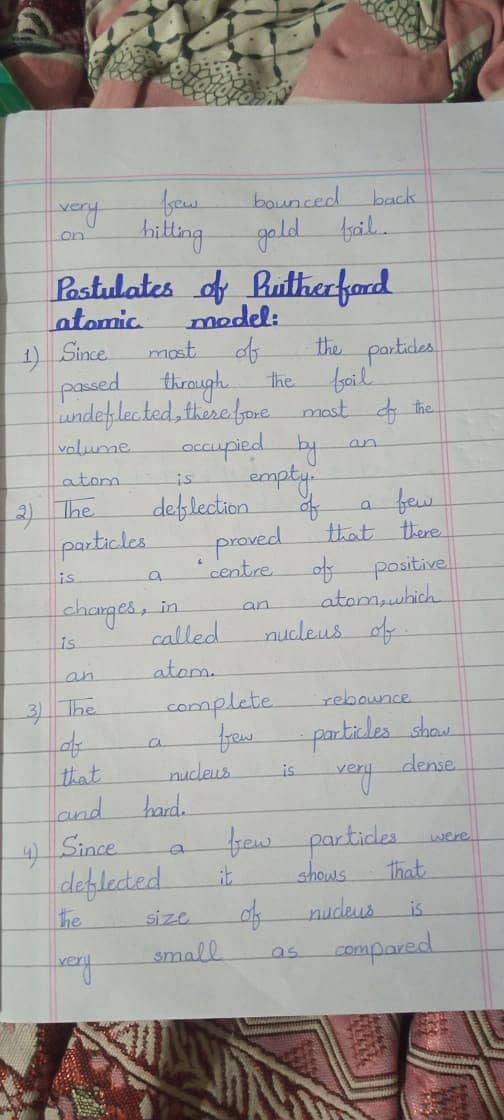 very few bounced back
on hitting gold foil.
Postulates of Rutherford
atomic model:
1) Since most of the particles
passed through the foil
undeflected, therefore most of the
volume occupied by an
atom is empty.
2) The deflection of a few
particles proved that there
is a 'centre of positive
charges, in an atom, which
is called nucleus of
an atom.
3) The complete rebounce
of a few particles show
that nucleus is very dense
and hard.
4) Since a few particles were
deflected it shows that
the size of nucleus is
very small as compared